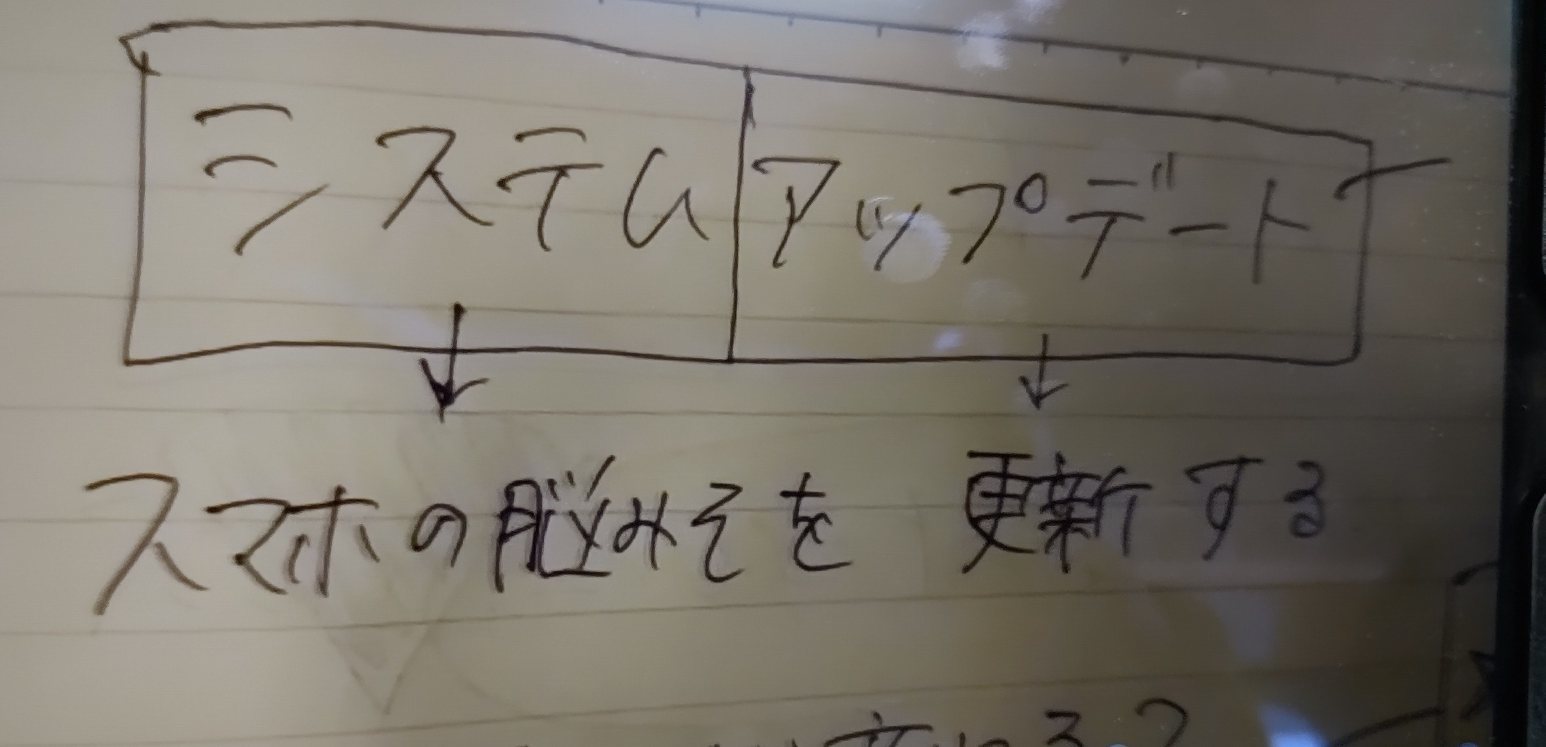 システム アップデート
スマホの脳みそを 更新する